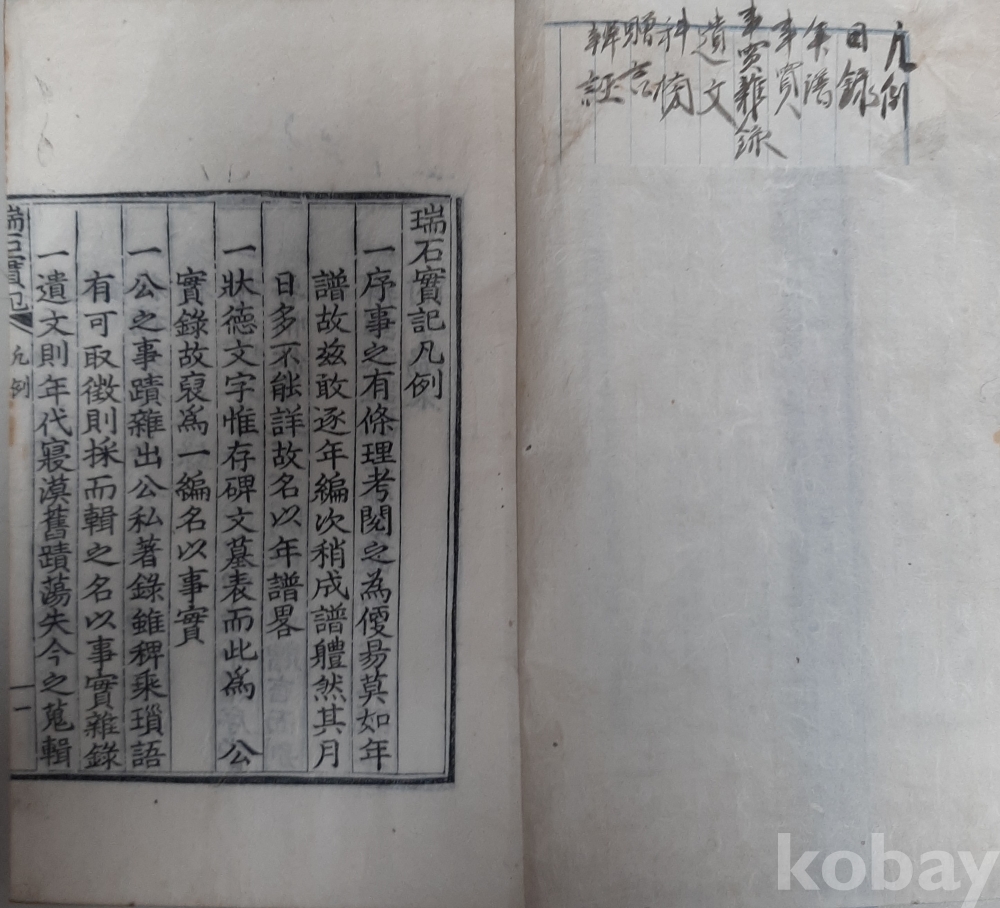 凡例
目錄
年譜
事實
事實雜錄
遺文
贈言
瑞石實記凡例
一序事之有條理考閱之為便易莫如年
譜故玆敢逐年編次稍成譜軆然其月
日多不能詳故名以年譜畧
一狀德文字惟存碑文墓表而此爲 公
實錄故裒爲一編名以事實
一公之事蹟雜出公私著錄雖稗乘瑣語
有可取徵則採而輯之名以事實雜錄
一遺文則年代寢漠舊蹟蕩失今之蒐輯
瑞石實記 凡例 一
kobay